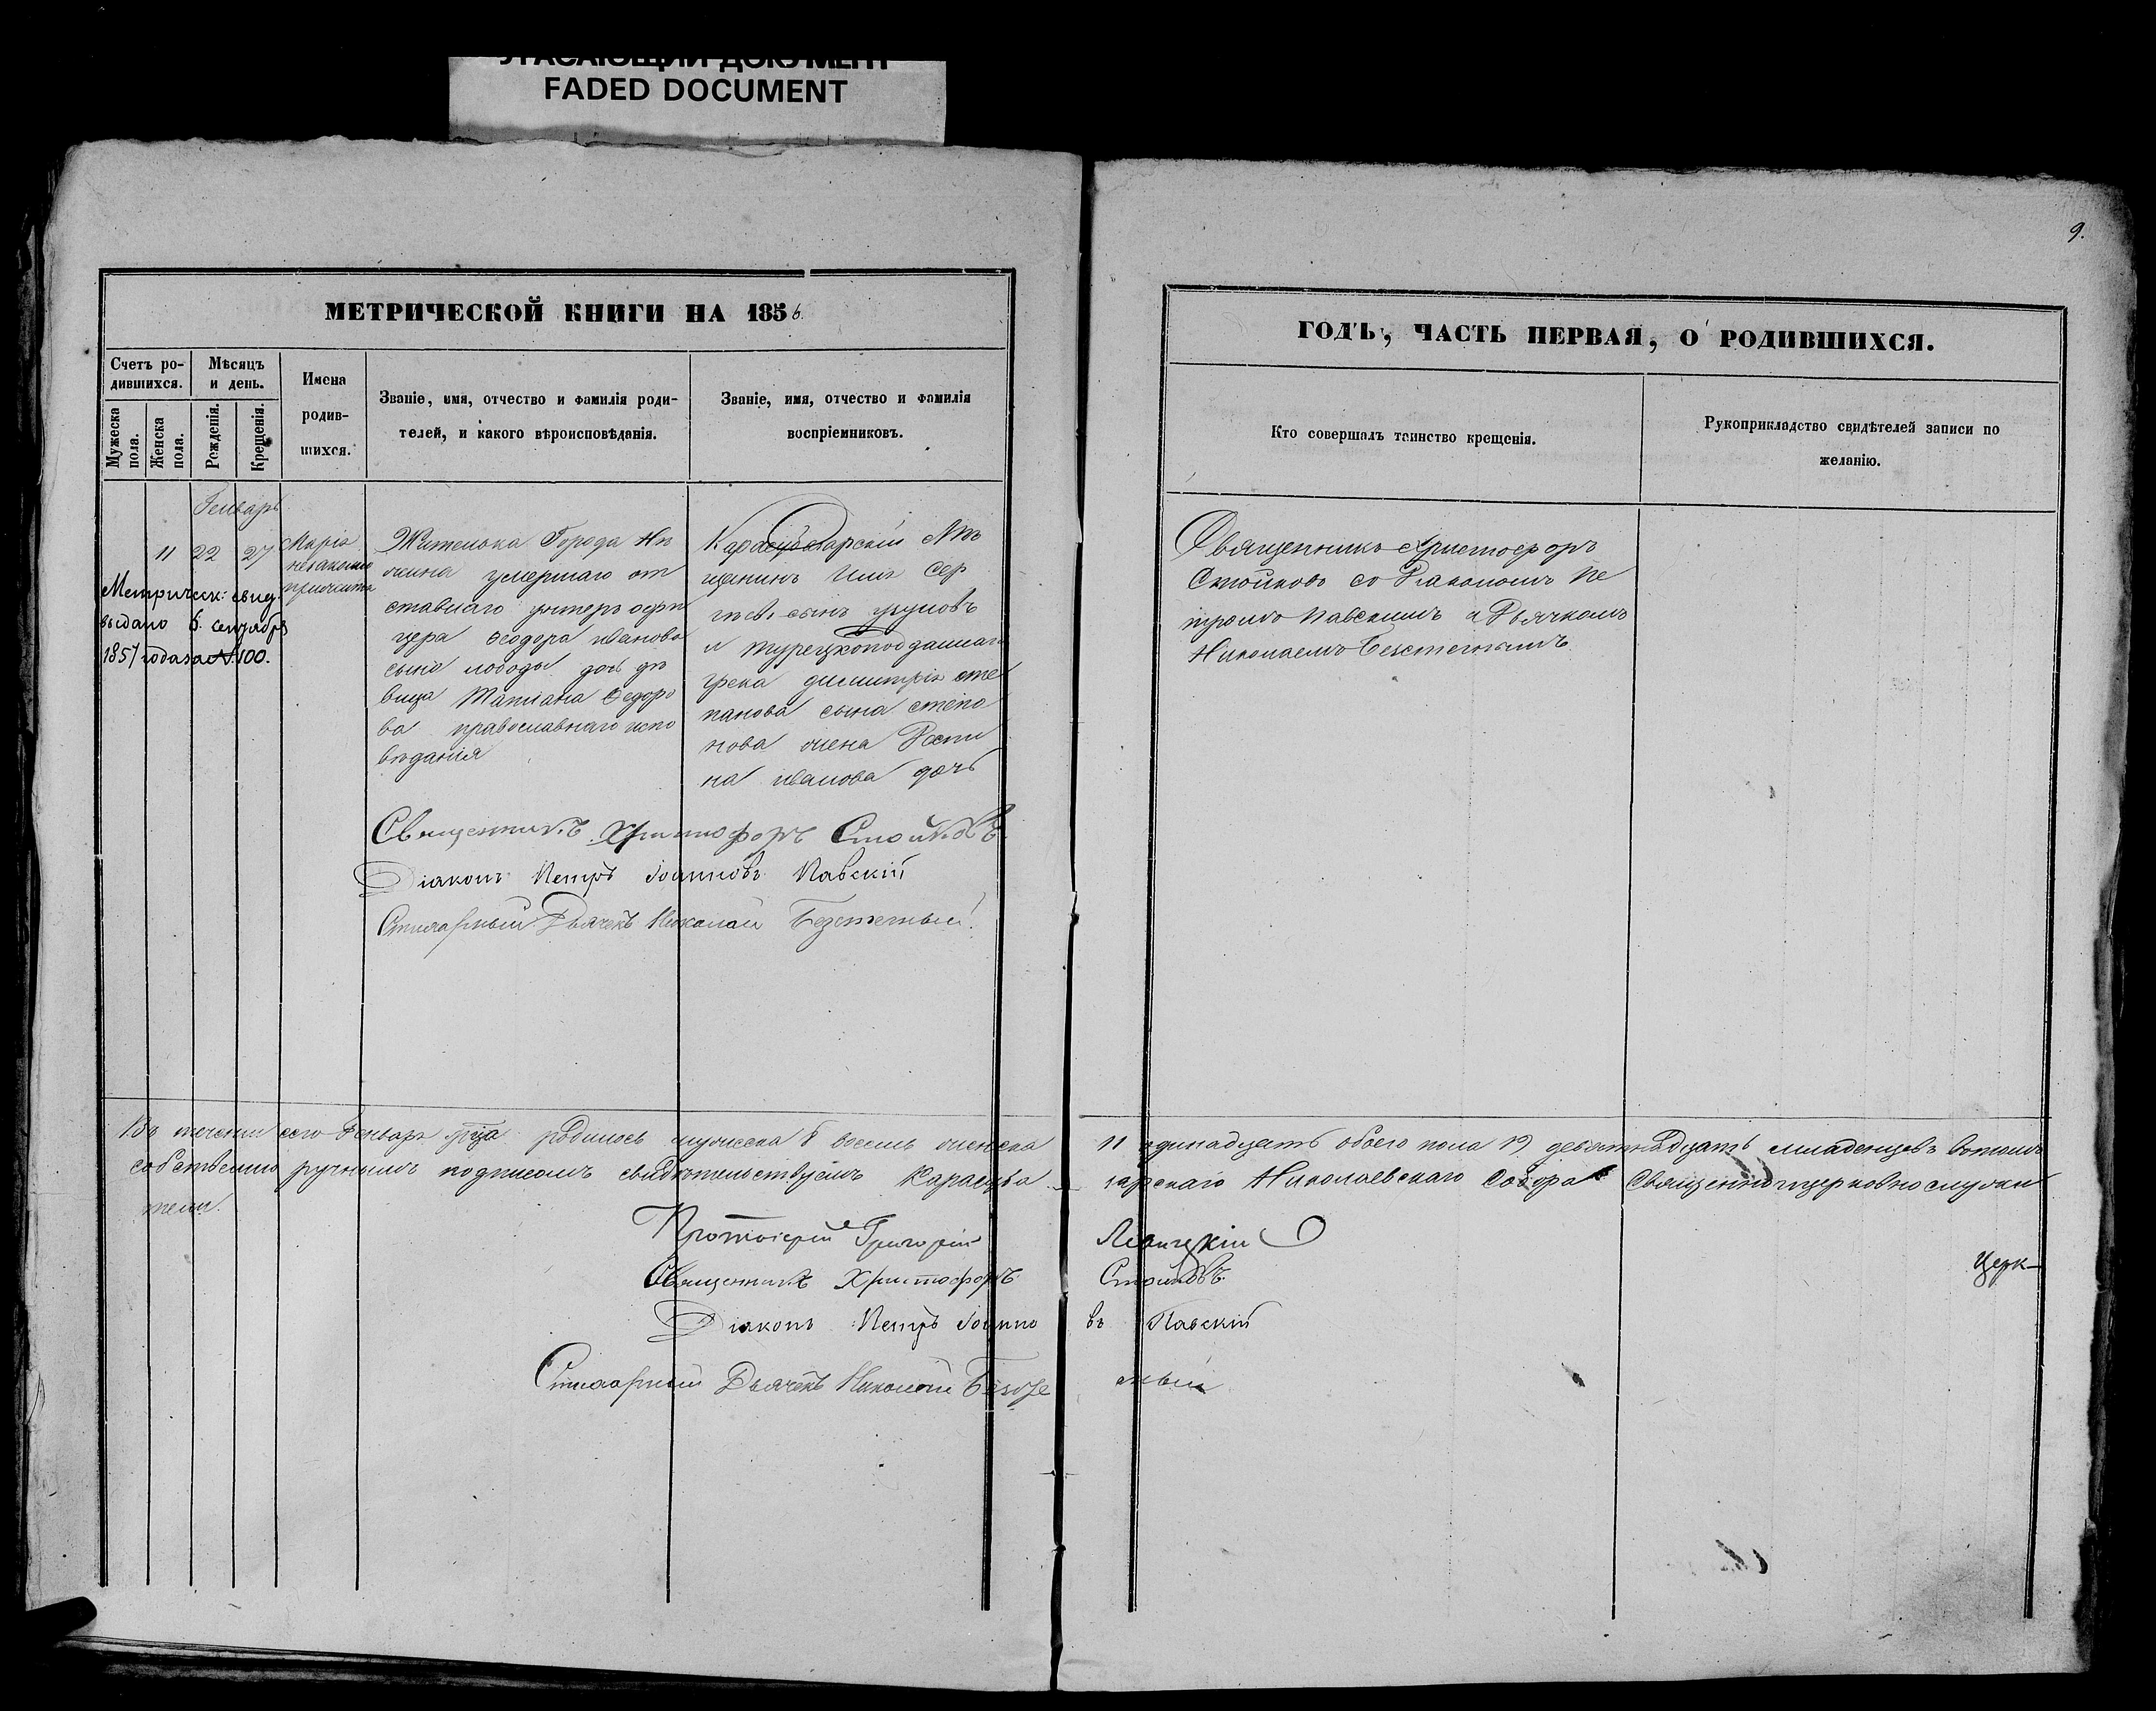 УГАСАЮЩИЙ ДОКУМЕНТ
FADED DOCUMENT
9.
МЕТРИЧЕСКОЙ КНИГИ НА 1856.
ГОДЪ, ЧАСТЬ ПЕРВАЯ, О РОДИВШИХСЯ.
Счетъ ро-
дившихся.
Мѣсяцъ
и день.
Мужеска
пола.
Женска
пола.
Рожденія.
Крещенія.
Имена
родив-
шихся.
Званіе, имя, отчество и фамилія роди-
телей, и какого вѣроисповѣданія.
Званіе, имя, отчество и фамилія
воспріемниковъ.
Кто совершалъ таинство крещенія.
Рукоприкладство свидѣтелей записи по
желанію.
Генварь
11 22 27
Марія
незаконно
прижита
Метрическ: свид.
выдано 6. сентября
1857 года за №100.
Жителька Города
умершаго от
ставнаго унтеръ офи
цера Ѳеодора иванова
сына лободы дочь дѣ
вица Татіана Ѳедоро
ва православнаго испо
вѣданія
Карасубазарскій Мѣ
щанинъ Илія Сер
сынъ узуновъ
и турецкоподданнаго
грека димитрія сте
панова сына степа
нова жена
на иванова дочь
Священникъ Христофоръ
Стойковъ со Діакономъ Пе
тромъ Павскимъ и Дьячкомъ
Николаемъ Безстетнымъ
Священникъ Христофоръ Стойковъ
Діаконъ Петръ Іоанновъ Павскій
Стихарный Дьячекъ Николай Безстетный.
Въ теченіи сего Генваря мѣсяца родилось мужеска 8 восемь женска 11 одинадцать обоего пола 19 девятнадцать младенцевъ вотомъ
собственно ручнымъ подписомъ свидѣтельствуемъ Карасуба зарскаго Николаевскаго Собора Священно и церковнослужи
тели.
Протоіерей Григорій
Священникъ Христофоръ Стойковъ.
Церк-
Діаконъ Петръ Іоанно въ Павскій
Стихарный Дьячекъ Николай